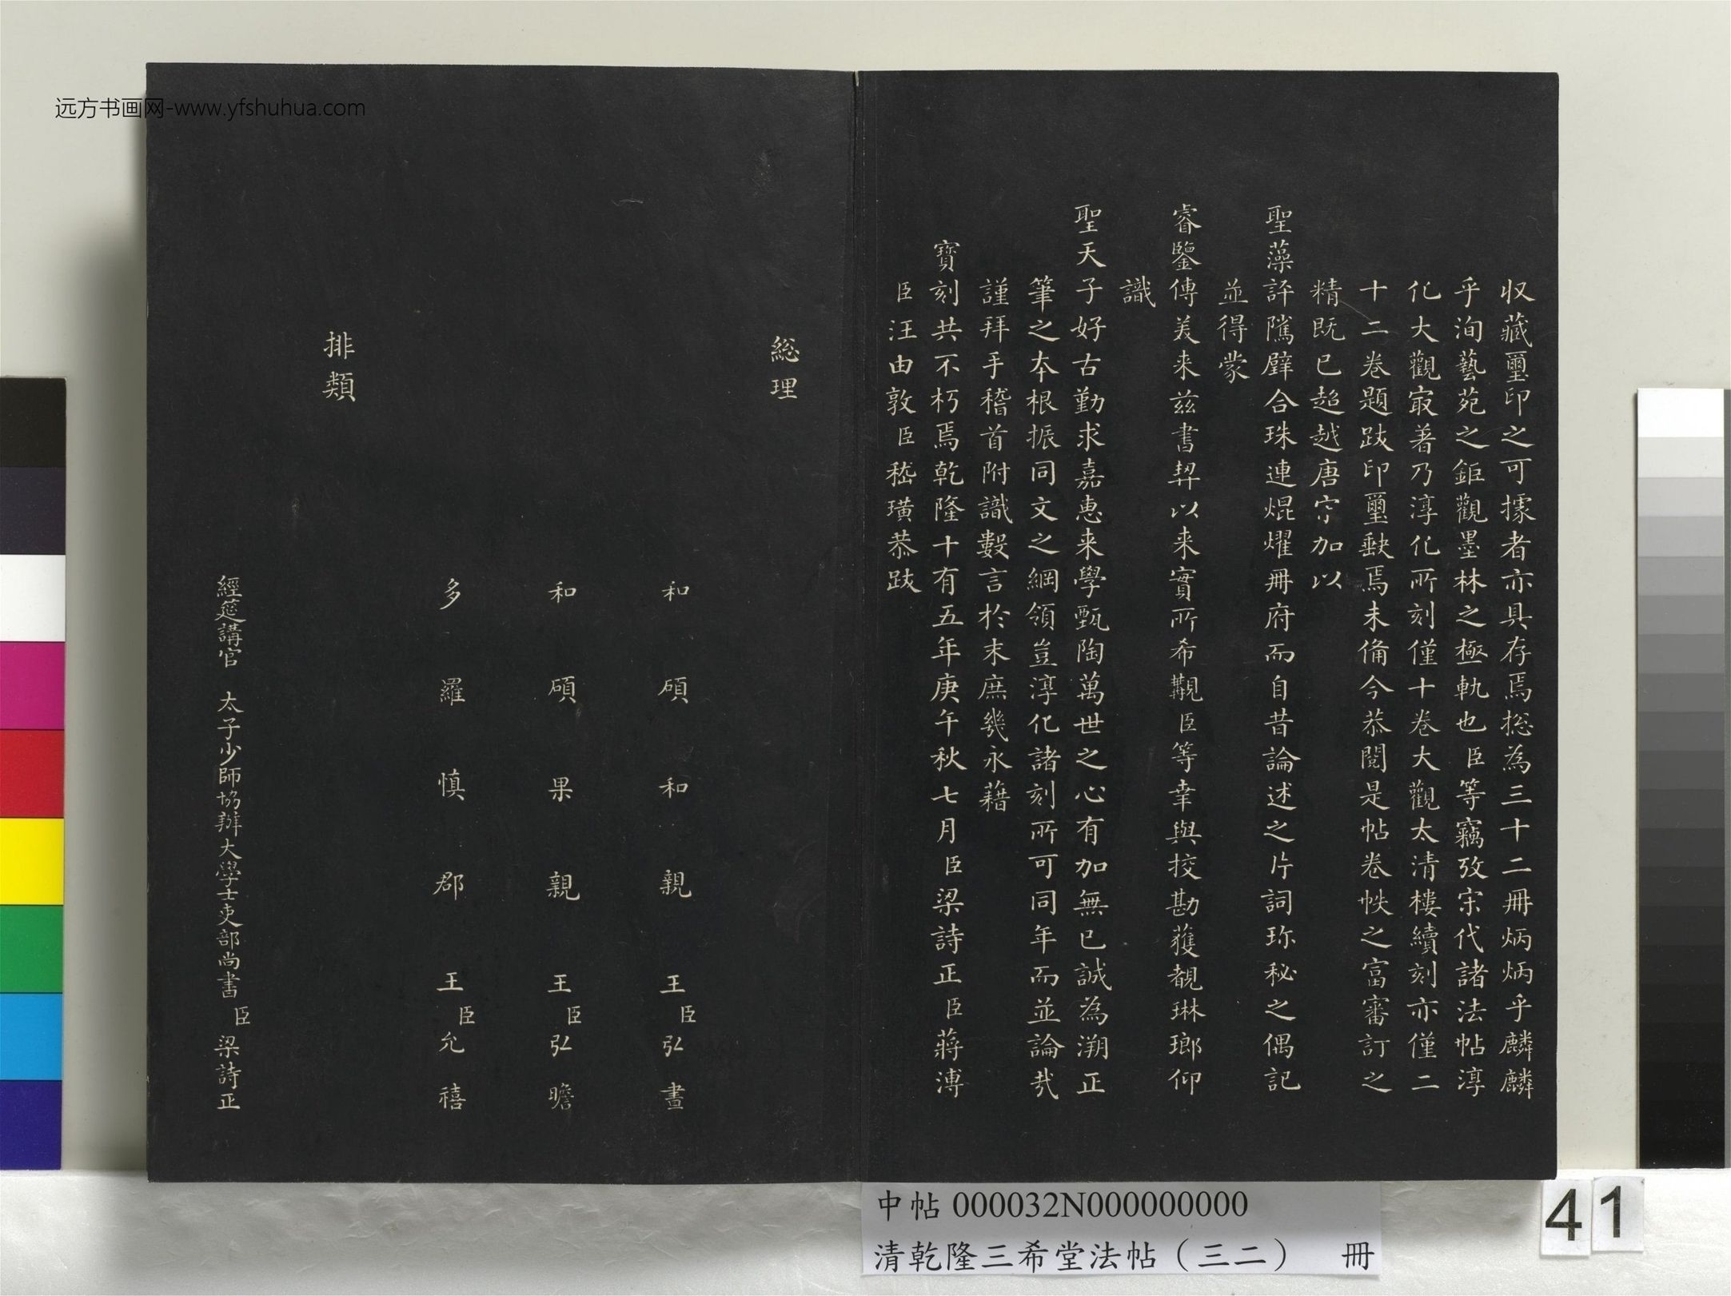 远方书画网-www.yfshuhua.com
収藏璽印之可據者亦具存焉揔為三十二冊炳炳乎麟麟
乎洵藝苑之鉅觀墨林之極軌也臣等竊攷宋代諸法帖淳
化大觀㝡著乃淳化所刻僅十卷大觀太清樓續刻亦僅二
十二卷題跋印璽缺焉未俻今恭閱是帖卷帙之富審訂之
精既已超越唐宋加以
聖藻評隲璧合珠連焜燿冊府而自昔論述之片詞珎秘之偶記
並得蒙
睿鑒傳美来兹書契以来實所希覯臣等幸與挍勘獲覩琳瑯仰
識
聖天子好古勤求嘉惠来學甄陶萬世之心有加無已誠為溯正
筆之本根振同文之綱領豈淳化諸刻所可同年而並論㢤
謹拜手稽首附識數言於末庶幾永藉
寶刻共不朽焉乾隆十有五年庚午秋七月臣梁詩正臣蔣溥
臣汪由敦臣嵇璜恭跋
総理
和碩和親王臣弘晝
和碩果親王臣弘瞻
多羅慎郡王臣允禧
排類
經筵講官 太子少師協辦大學士吏部尚書臣梁詩正
中帖 000032N000000000
清乾隆三希堂法帖（三二） 冊
41